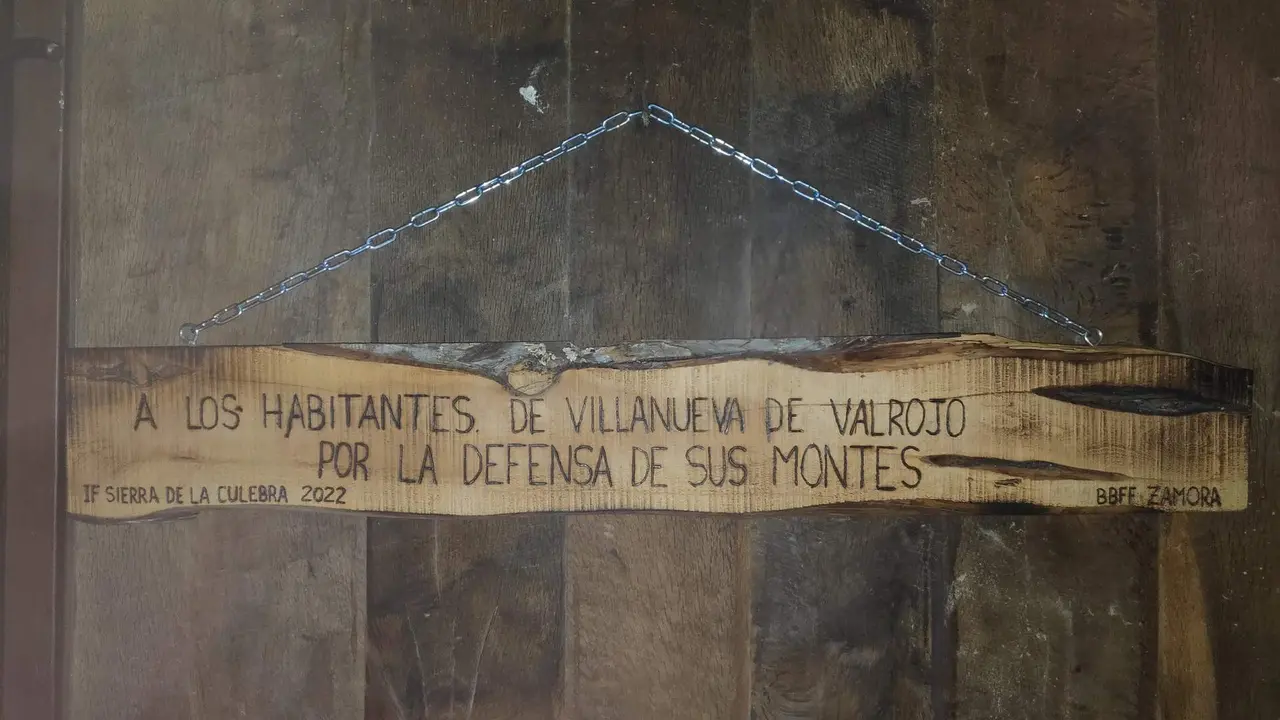 A LOS HABITANTES. DE VILLANUEVA DE VALROJO
POR LA DEFENSA DE SUS MONTES
IF SIERRA DE LA CULEBRA 2022
BBFF ZAMORA